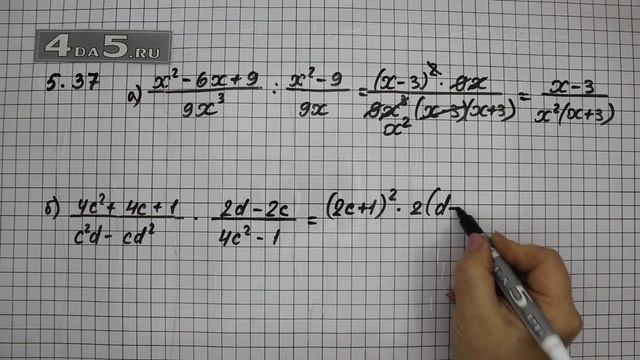 4DA5.RU
5.37 а) \frac{x² - 6x + 9}{9x³} : \frac{x² - 9}{9x} = \frac{(x - 3)² · 9x}{9x³ (x - 3)(x + 3)} = \frac{x - 3}{x²(x + 3)}
x²
б) \frac{4c² + 4c + 1}{c²d - cd²} · \frac{2d - 2c}{4c² - 1} = (2c + 1)² · 2(d -
DA5